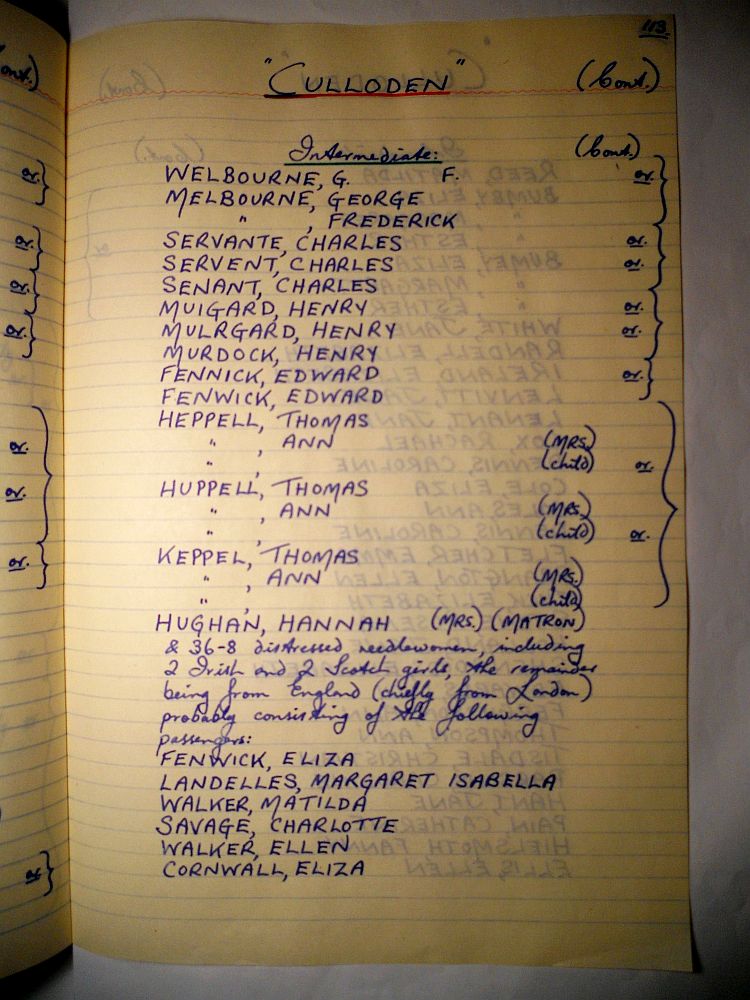 113
"CULLODEN" (Cont.)
Intermediate: (Cont.)
WELBOURNE, G. F. or.
MELBOURNE, GEORGE
" , FREDERICK
SERVANTE, CHARLES or.
SERVENT, CHARLES or.
SENANT, CHARLES
MUIGARD, HENRY or.
MULRGARD, HENRY or.
MURDOCK, HENRY
FENNICK, EDWARD or.
FENWICK, EDWARD
HEPPELL, THOMAS
" , ANN (MRS.)
" , (child) or.
HUPPELL, THOMAS
" , ANN (MRS.)
" , (child) or.
KEPPEL, THOMAS
" , ANN (MRS.)
" , (child)
HUGHAN, HANNAH (MRS.) (MATRON)
& 36-8 distressed needlewomen, including
2 Irish and 2 Scotch girls, the remainder
being from England (chiefly from London)
probably consisting of the following
passengers:
FENWICK, ELIZA
LANDELLES, MARGARET ISABELLA
WALKER, MATILDA
SAVAGE, CHARLOTTE
WALKER, ELLEN
CORNWALL, ELIZA